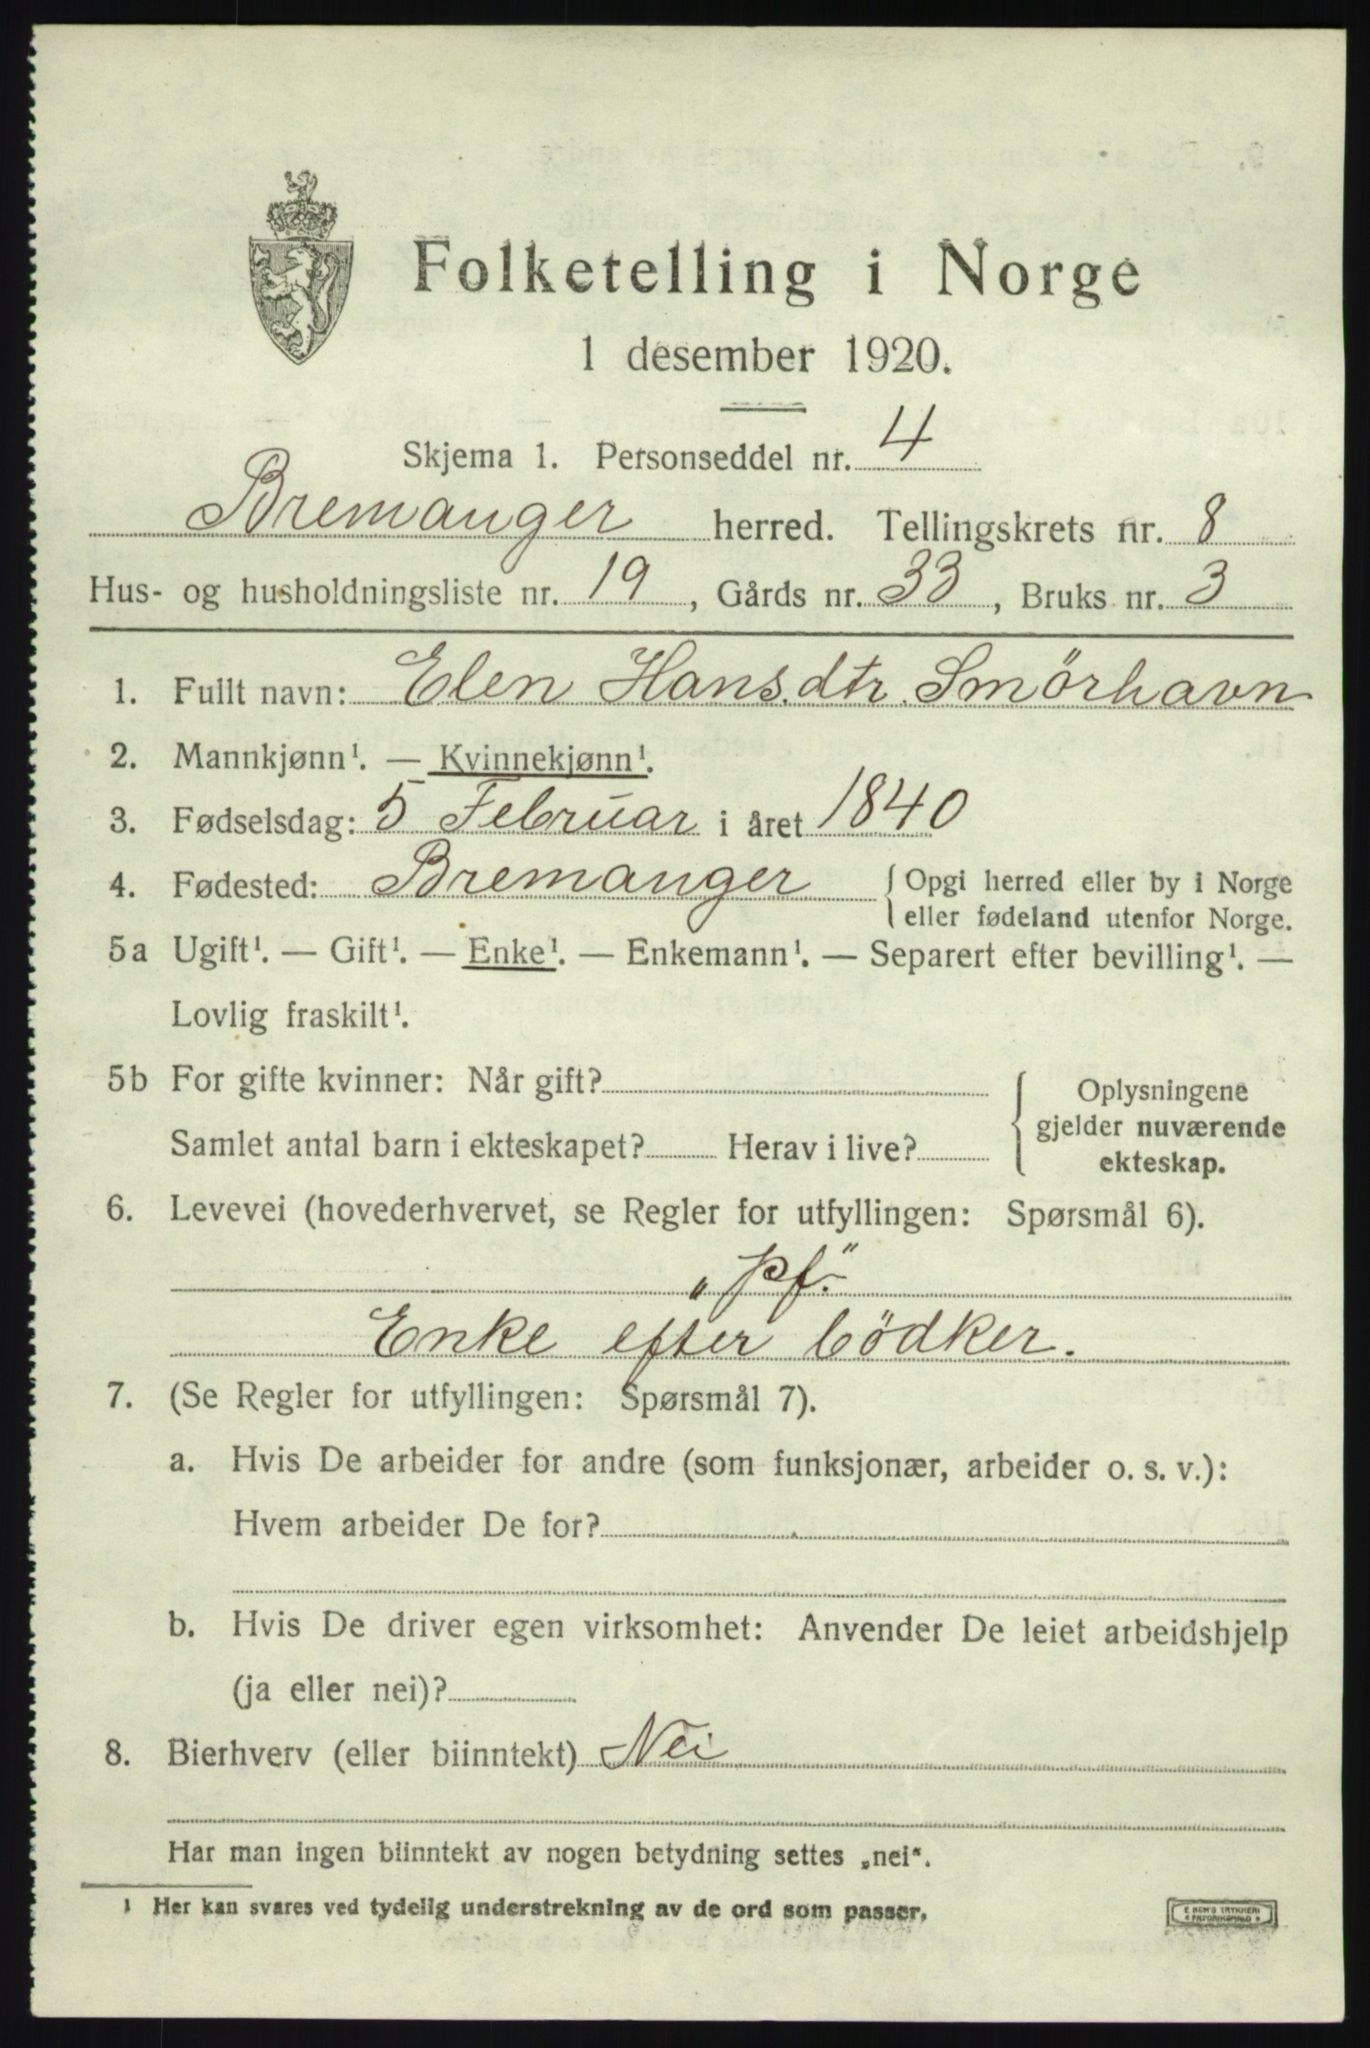 Folketelling i Norge
1 desember 1920.
Skjema 1. Personseddel nr. 4
Bremanger herred. Tellingskrets nr. 8
Hus- og husholdningsliste nr. 19, Gårds nr. 33, Bruks nr. 3
1. Fullt navn: Elen Hans.dtr. Smörhavn
2. Mannkjønn¹. — Kvinnekjønn¹.
3. Fødselsdag: 5 Februar i året 1840
4. Fødested: Bremanger { Opgi herred eller by i Norge
eller fødeland utenfor Norge.
5a Ugift¹. — Gift¹. — Enke¹. — Enkemann¹. — Separert efter bevilling¹. —
Lovlig fraskilt¹.
5b For gifte kvinner: Når gift?
Samlet antal barn i ekteskapet? Herav i live?
{ Oplysningene
gjelder nuværende
ekteskap.
6. Levevei (hovederhvervet, se Regler for utfyllingen: Spørsmål 6).
„pf.“
Enke efter bödker.
7. (Se Regler for utfyllingen: Spørsmål 7).
a. Hvis De arbeider for andre (som funksjonær, arbeider o. s. v.):
Hvem arbeider De for?
b. Hvis De driver egen virksomhet: Anvender De leiet arbeidshjelp
(ja eller nei)?
8. Bierhverv (eller biinntekt) Nei
Har man ingen biinntekt av nogen betydning settes „nei“.
¹ Her kan svares ved tydelig understrekning av de ord som passer.